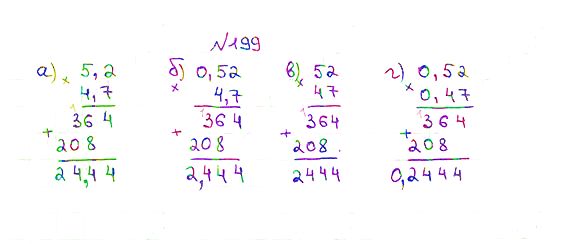 №199
а) 5,2 б) 0,52 в) 52 г) 0,52
× 4,7 × 4,7 × 47 × 0,47
1 1 1 1
364 364 364 364
+ 208 + 208 + 208. + 208
24,44 2,444 2444 0,2444